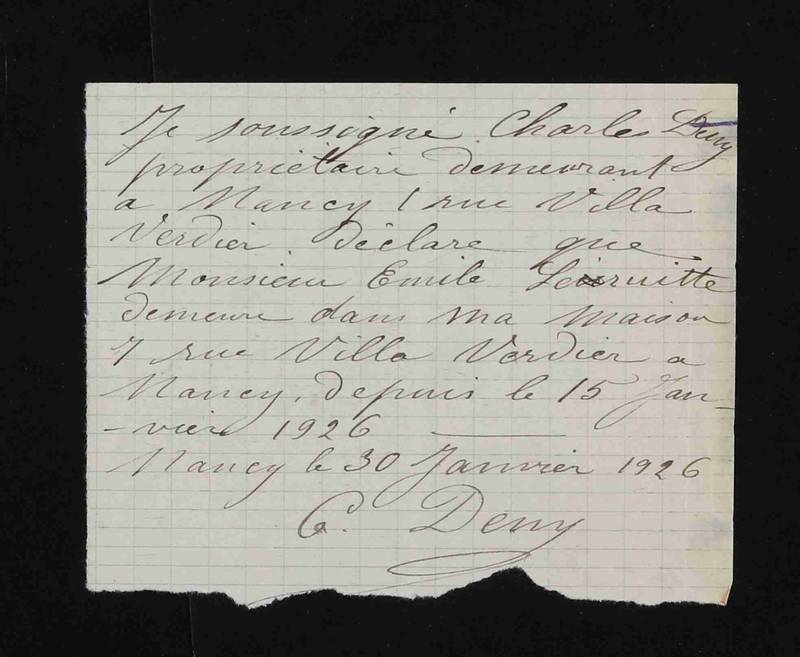 Je soussigné Charles Deny
propriétaire demeurant
a Nancy 1 rue Villa
Verdier déclare que
Monsieur Emile
demeure dans ma maison
7 rue Villa Verdier a
Nancy, depuis le 15 Jan-
-vier 1926
Nancy le 30 Janvier 1926
C. Deny